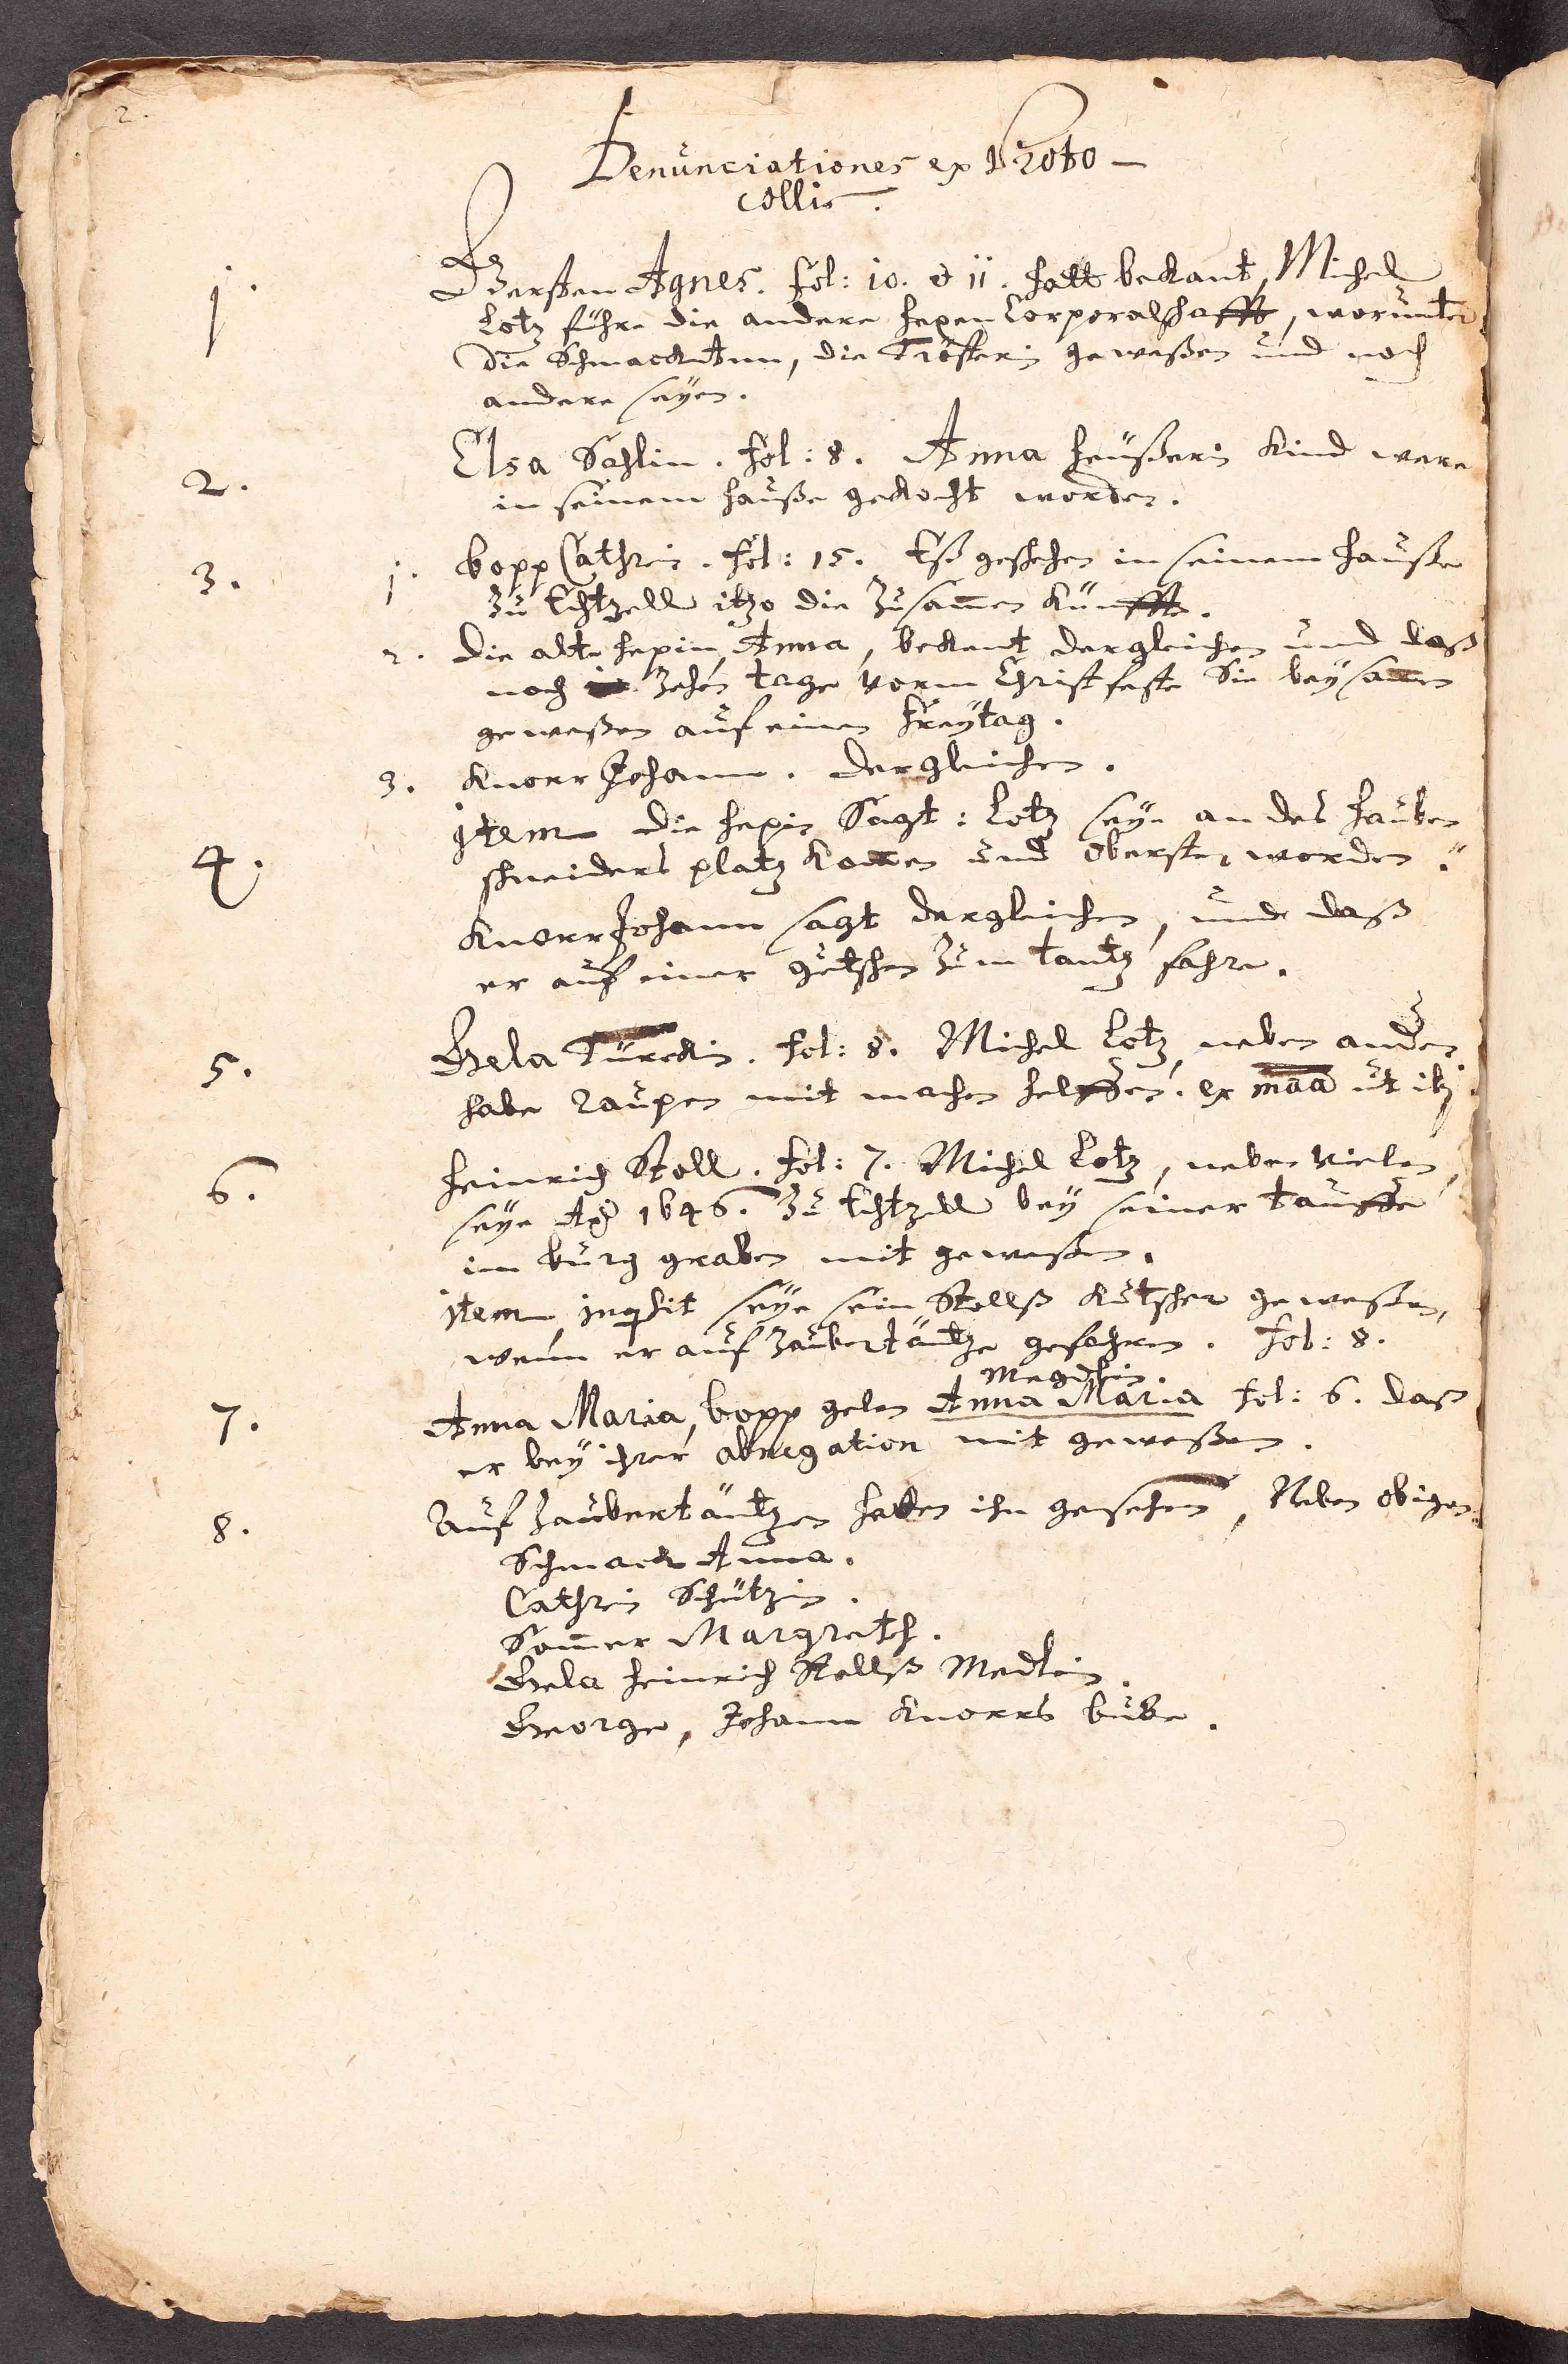 2.
Denunciationes ex Proto-
collis.
1. Gersten Agnes. fol: 10. et 11. hatt bekant, Michel
Lotz führe die andere hexen Corporalschafft, worunter
die Schmackt Ann, die Trösterin geweßen und noch
andere seyen.
2. Elsa Sahlin. fol: 8. Anna heußerin Kind were
in seinem hauße gekocht worden.
3. 1. bopp Cathrin. fol: 15. Eß geschehen in seinem hauße
zu Echtzell itzo die Zusam̅en Kunffte.
2. die alte hexin Anna, bekent dergleichen und daß
noch zehen tage vorm Christfeste Sie beysam̅en
geweßen auf einen Freytag.
3. Knorr Johann. dergleichen.
4. Item die hexin Sagt: Lotz seye an des hauben
schneiders platz kom̅en und Oberster worden.
Knorr Johann sagt dergleichen, und daß
er auf einer gutschen zum tantz fahre.
5. Gela Türckin. fol: 8. Michel Lotz neben andern
habe raupen mit machen helffen. ex maa ut
6. Heinrich Stoll. fol: 7. Michel Lotz, neben vielen,
seye Ao 1646. zu Echtzell bey seiner tauffe
im burg graben mit geweßen.
item, inquisit seye sein Stollß Kutscher geweßen,
wenn er auf Zaubertäntze gefahren. fol: 8.
Megdlin.
7. Anna Maria, bopp gelen Anna Maria fol: 6. daß
er bey ihrer abnegation mit geweßen.
8. Auf Zaubertäntzen haben ihn gesehen, Neben obigen.
Schmack Anna.
Cathrin Schützin.
Som̅er Margreth.
Gela Heinrich Stollß Medlin.
George, Johann Knorrs bube.